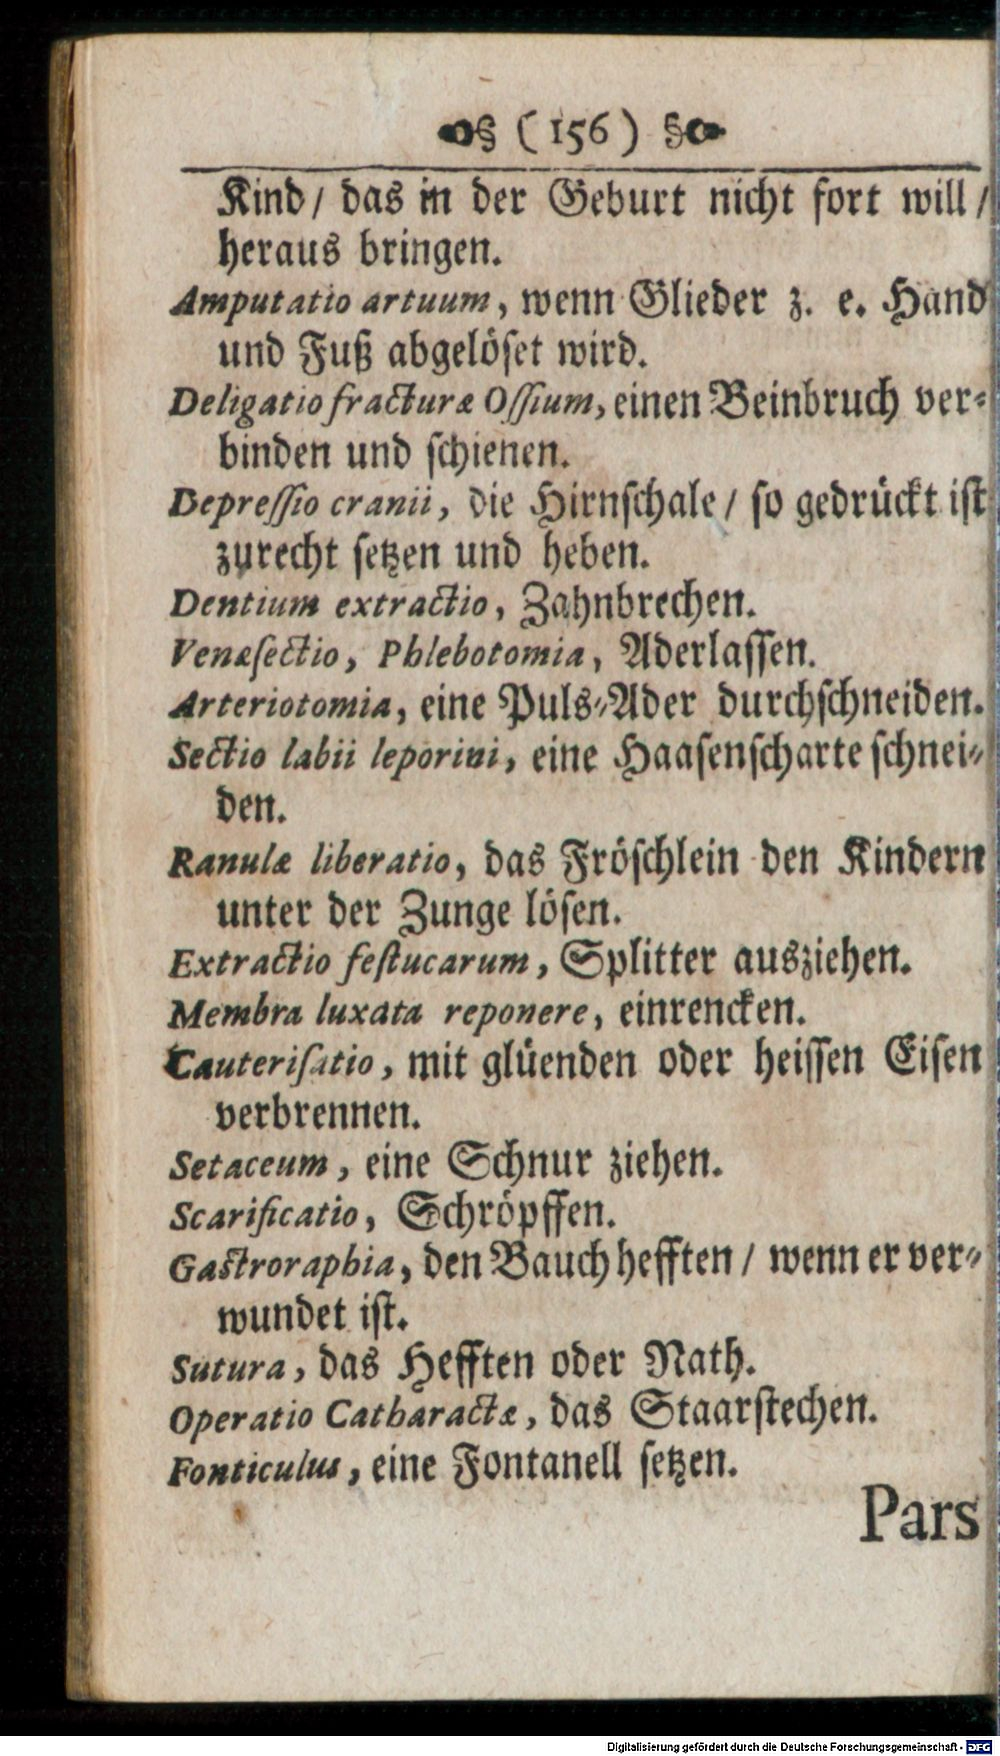 (156)
Kind/ das in der Geburt nicht fort will/
heraus bringen.
Amputatio artuum, wenn Glieder z. e. Hand
und Fuß abgelöset wird.
Deligatio fracturæ Ossium, einen Beinbruch ver-
binden und schienen.
Depressio cranii, die Hirnschale/ so gedrückt ist
zurecht setzen und heben.
Dentium extractio, Zahnbrechen.
Venæsectio, Phlebotomia, Aderlassen.
Arteriotomia, eine Puls-Ader durchschneiden.
Sectio labii leporini, eine Haasenscharte schnei-
den.
Ranulæ liberatio, das Fröschlein den Kindern
unter der Zunge lösen.
Extractio festucarum, Splitter ausziehen.
Membra luxata reponere, einrencken.
Cauterisatio, mit glüenden oder heissen Eisen
verbrennen.
Setaceum, eine Schnur ziehen.
Scarificatio, Schröpffen.
Gastroraphia, den Bauch hefften/ wenn er ver-
wundet ist.
Sutura, das Hefften oder Nath.
Operatio Catharactæ, das Staarstechen.
Fonticulus, eine Fontanell setzen.
Pars
Digitalisierung gefördert durch die Deutsche Forschungsgemeinschaft - DFG